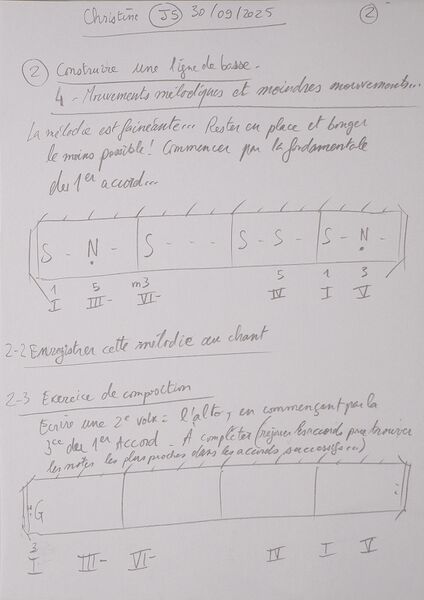 Christine JS 30/09/2025 2
2 Construire une ligne de basse.
4 - Mouvements mélodiques et moindres mouvements...
La mélodie est fainéante... Rester en place et bouger
le moins possible! Commencer par la fondamentale
du 1er accord...
S - N - S - - - S - S - S - N -
1 5 m3 5 1 3
I III- VI- IV I V
2-2 Enregistrer cette mélodie au chant
2-3 Exercice de composition
Ecrire une 2e voix = l'alto, en commençant par la
3ce du 1er Accord - À compléter (rejouer les accords pour trouver
les notes les plus proches dans les accords successifs...)
G
3
I III- VI- IV I V